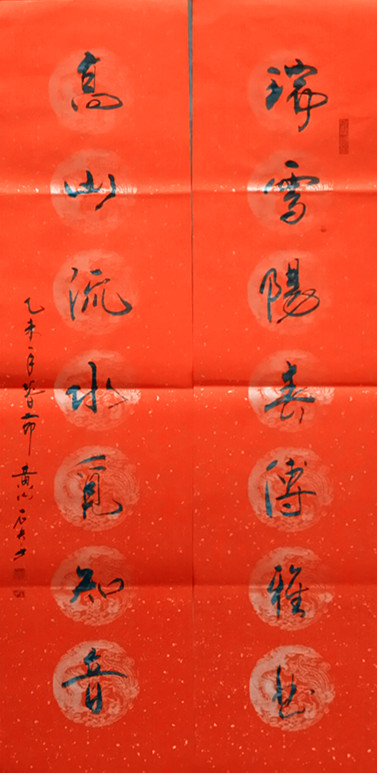 瑞雪陽春傳雅
高山流水覓知音
乙未年春節